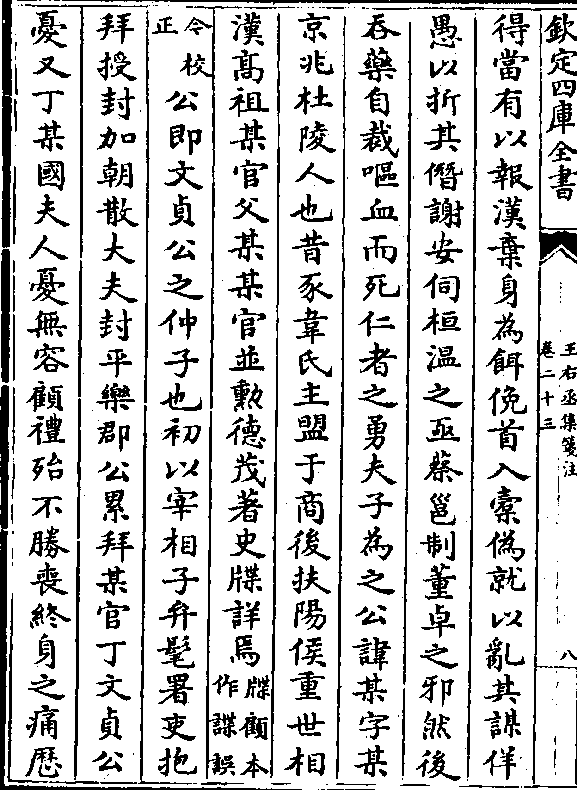 欽定四庫全書
王右丞集箋注
卷二十三
八
得當有以報漢棄身為餌俛首入橐偽就以亂其謀佯
愚以折其僭謝安伺桓溫之亟蔡邕制董卓之邪然後
吞藥自裁嘔血而死仁者之勇夫子為之公諱某字某
京兆杜陵人也昔豕韋氏主盟于商後扶陽侯重世相
漢髙祖某官父某某官並勲德茂著史牒詳焉牒顧本作諜誤
今校正公即文貞公之仲子也初以宰相子弁髦署吏抱
拜授封加朝散大夫封平樂郡公累拜某官丁文貞公
憂又丁某國夫人憂無容顧禮殆不勝喪終身之痛歴